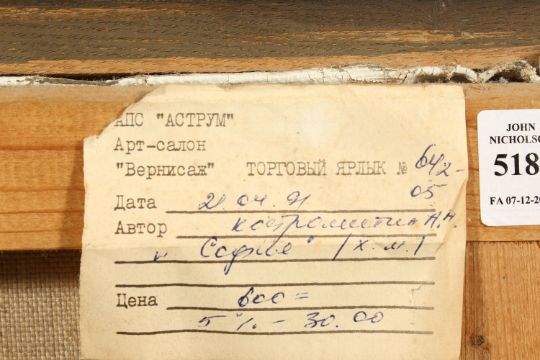 АПС "АСТРУМ"
Арт-салон
"Вернисаж" ТОРГОВЫЙ ЯРЛЫК № 642-
05
Дата 21.04.91
Автор Костромитин А.А.
"Софье" (х.м.)
Цена 600=
5% - 30.00
JOHN
NICHOLSO
518
FA 07-12-20